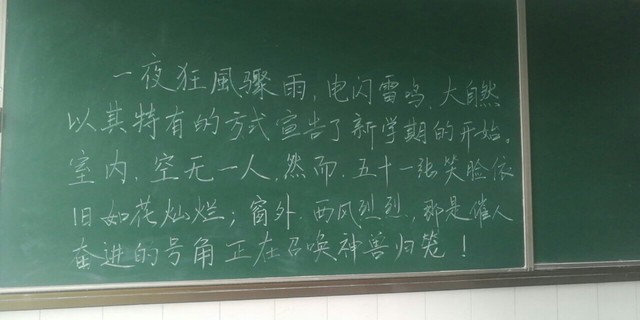 一夜狂風骤雨,电闪雷鸣,大自然
以其特有的方式宣告了新学期的开始。
室内,空无一人,然而,五十一张笑脸依
旧如花灿烂;窗外,西风烈烈,那是催人
奋进的号角正在召唤神兽归笼!